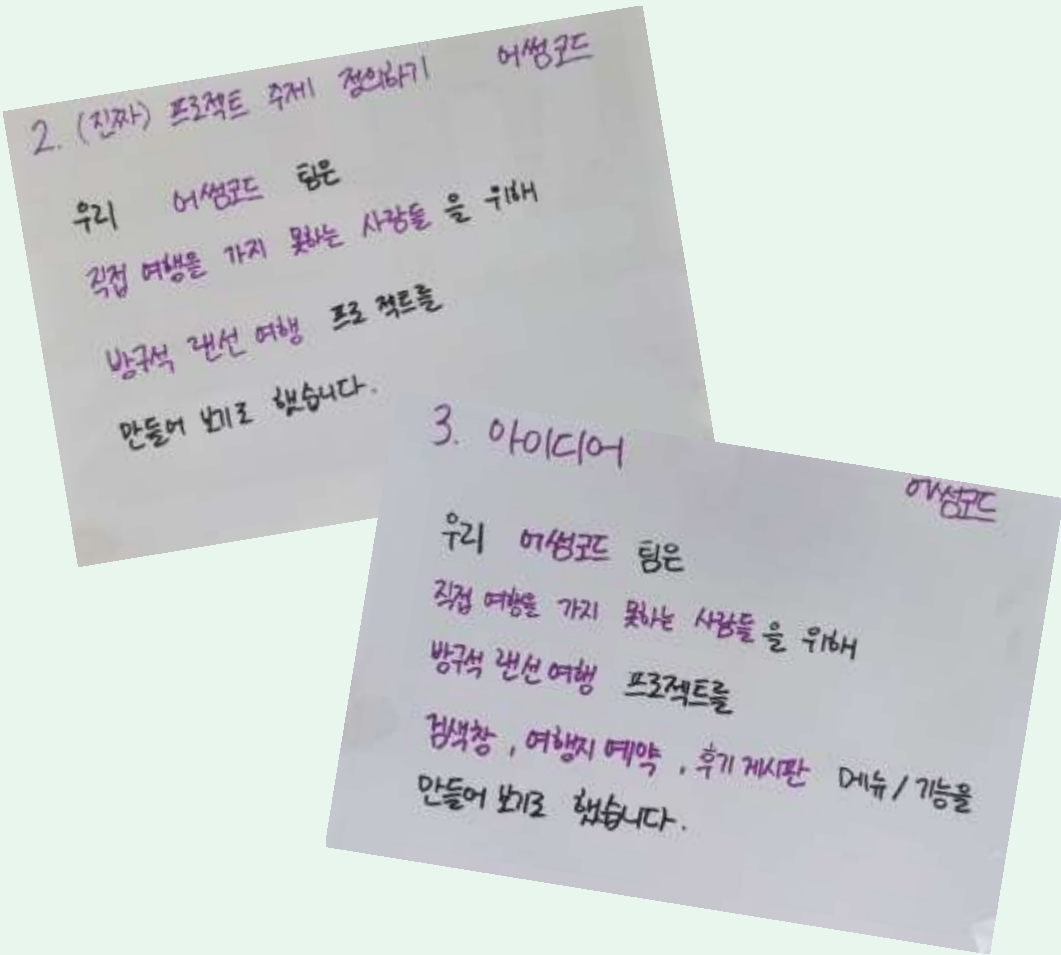 2. (진짜) 프로젝트 주제 정의하기 어썸코드
우리 어썸코드 팀은
직접 여행을 가지 못하는 사람들을 위해
방구석 랜선 여행 프로젝트를
만들어 보기로 했습니다.
3. 아이디어
어썸코드
우리 어썸코드 팀은
직접 여행을 가지 못하는 사람들을 위해
방구석 랜선 여행 프로젝트를
검색창, 여행지 예약, 후기 게시판 메뉴/기능을
만들어 보기로 했습니다.